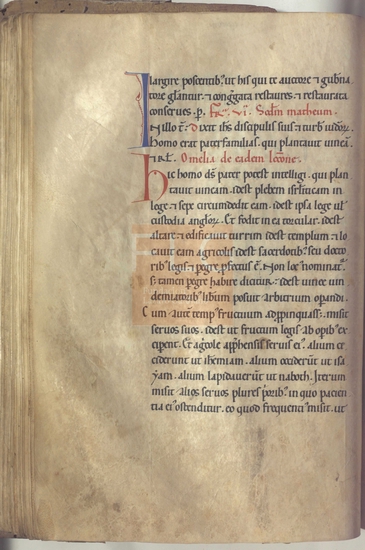 largire poscentib; ut his qui te auctore ⁊ gub̄na
tore gl̄antur. ⁊ cong̃gata restaures ⁊ restaurata
conserves. p. F̃r. vi. Scd̄m matheum.
In illo t̄. Dixit ih̄s discipulis suis ⁊ turb̄ iudeoꝝ.
homo erat pater familias. qui plantavit vineā.
⁊ rl̄. Omelia de eadem lc̄one.
Hic homo d̄s pater potest intelligi. qui plan
tavit vineam. idest plebem isrl̄iticam in
lege. ⁊ sepe circumdedit eam. idest ipsa lege vl̄
custodia angl̄oꝝ. Et fodit in ea torcular. idest
altare. ⁊ edificavit turrim idest templum. ⁊ lo
cavit eam agricolis idest sacerdotib; seu docto
rib; legis. ⁊ peg̃re ꝓfectus ē. Non loc̄ nominat᷒
s; tamen peg̃re habiire dicitur. idest vineę vin
demiatorib; liberum posuit arbitrium operandi.
Cum autē temp᷒ fructuum adpinquass;. misit
servos suos. idest ut fructum legis ab opib; ex
cipent. Et ag̃cole app̄hensis servis ei᷒. alium ce
ciderunt ut iheremiam. alium occiderūt ut isa
yam. alium lapidaverūt ut naboth. Iterum
misit alios servos plures priorib; in quo pacien
tia ei᷒ ostenditur. eo quod frequent̄ misit. ut